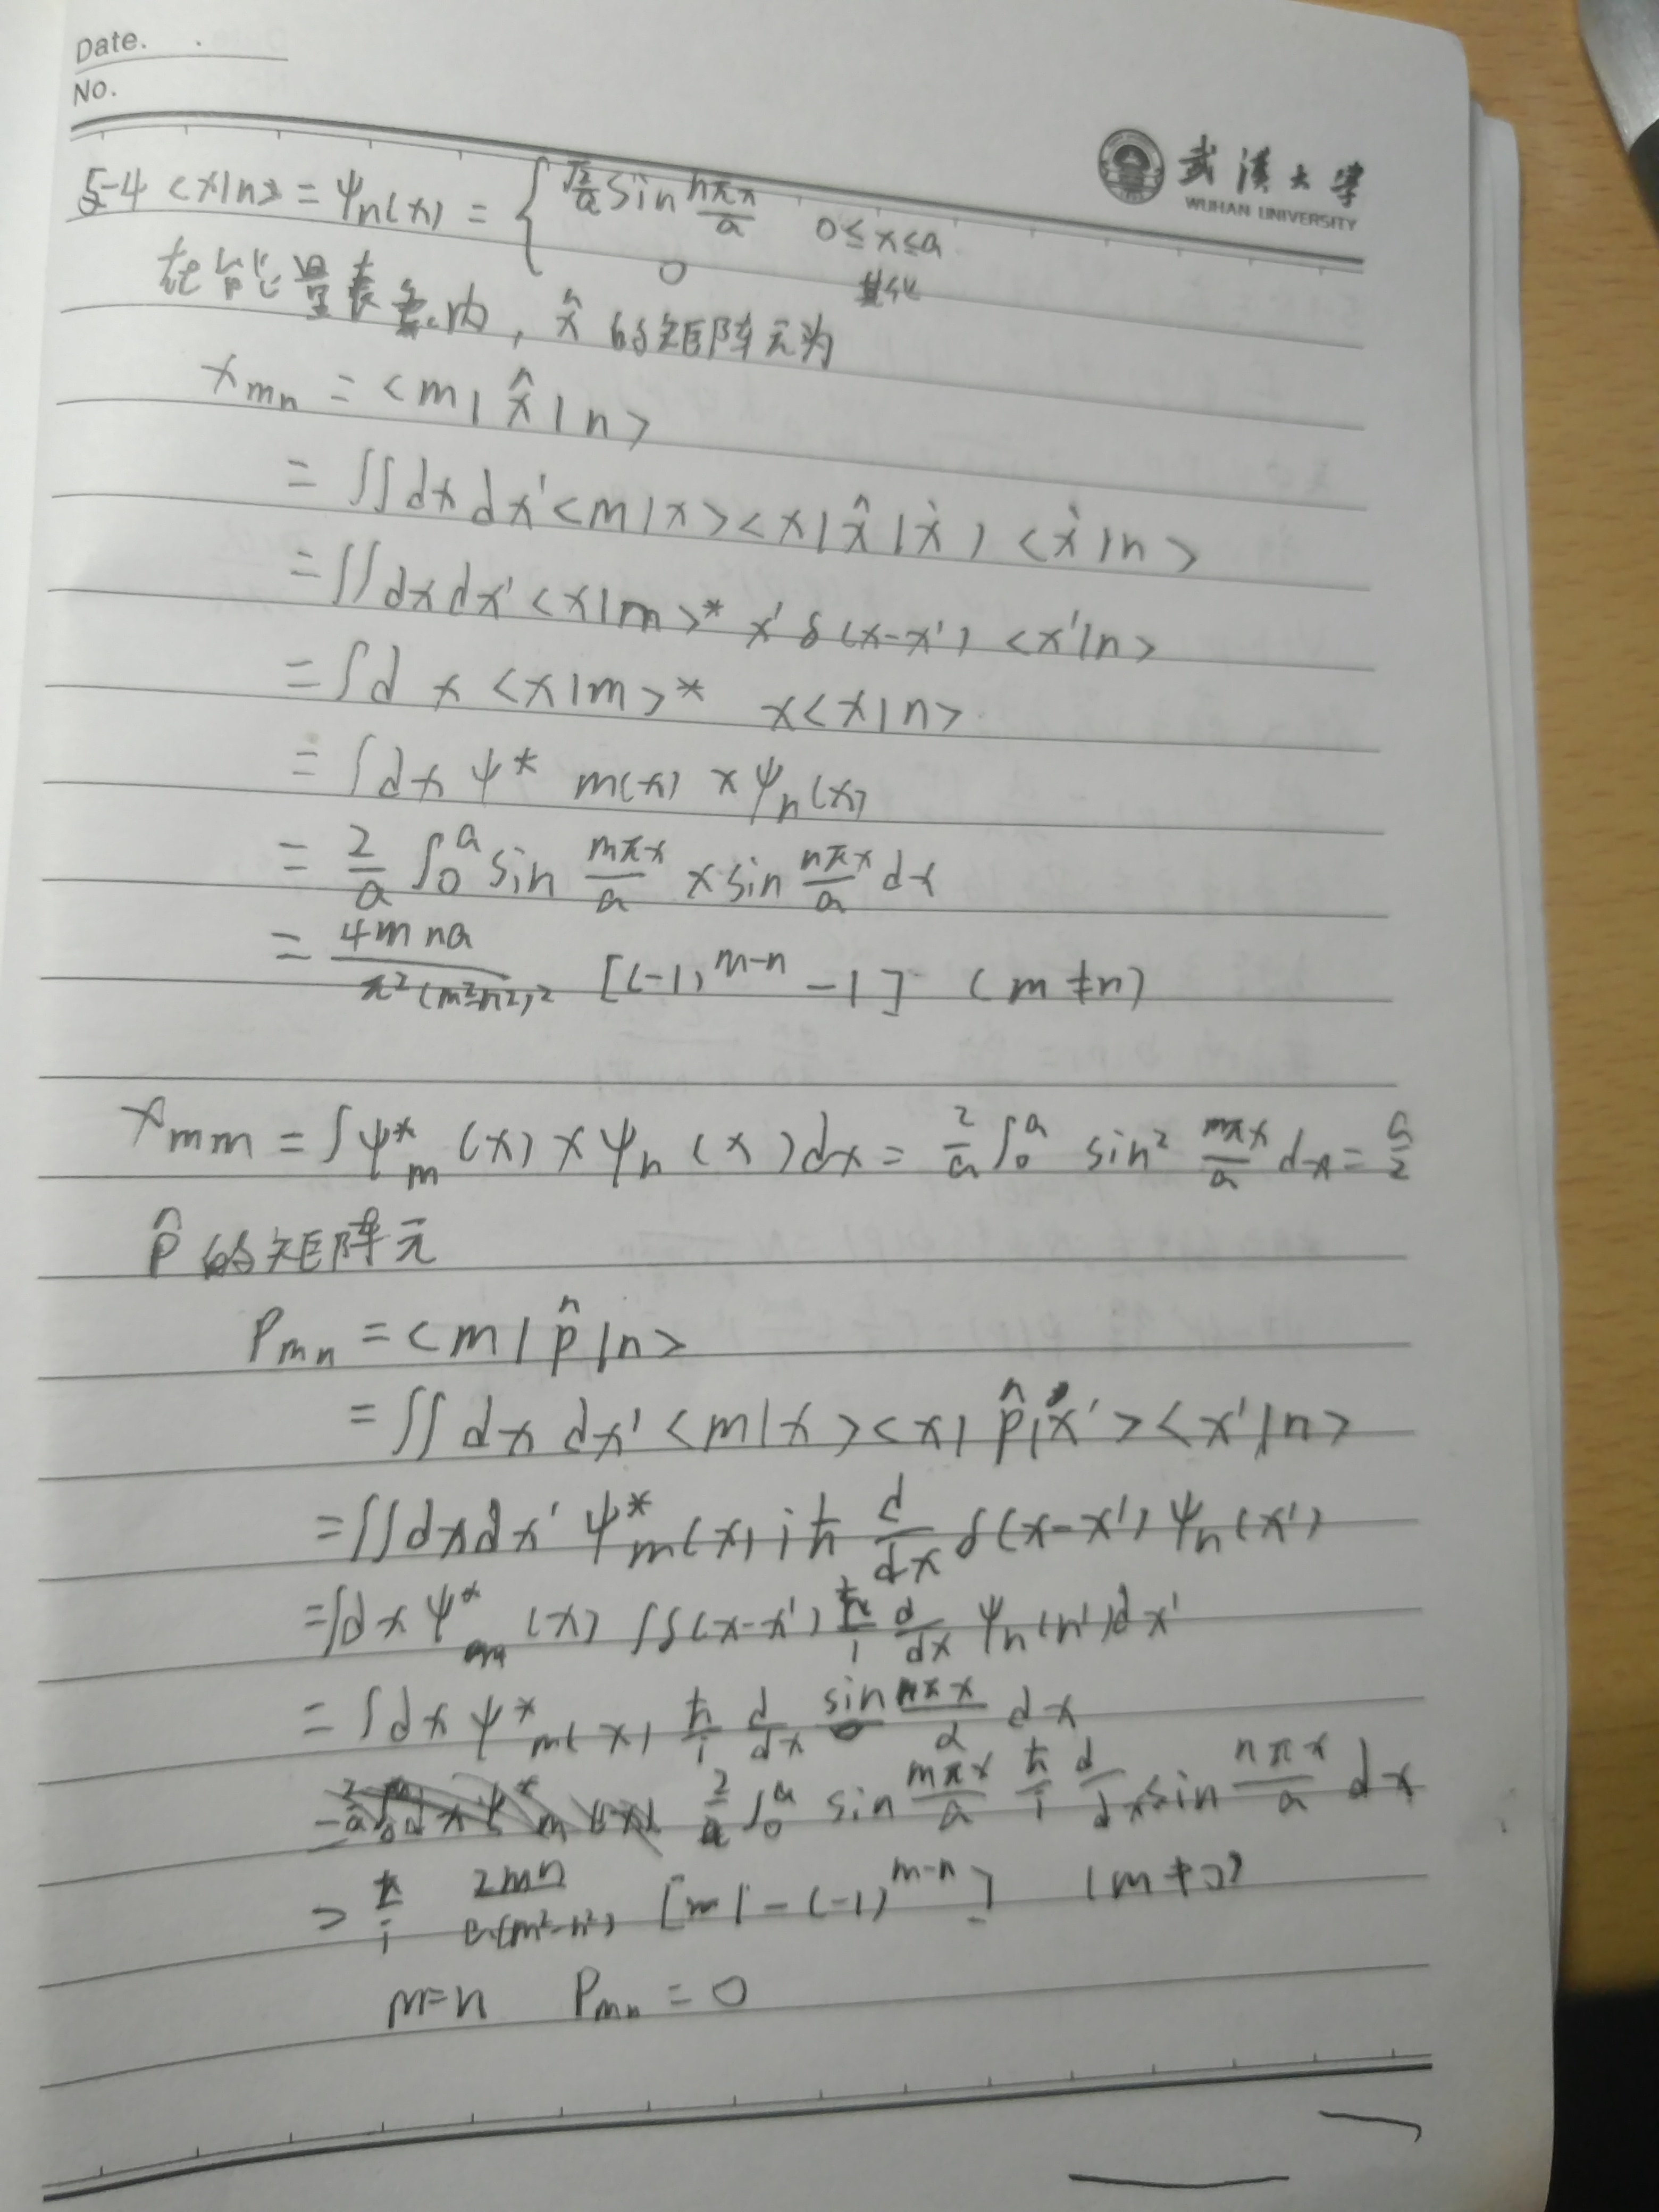 Date. .
No.
武汉大学
WUHAN UNIVERSITY
5-4 <x|n> = ψn(x) = { √(2/a) sin nπx/a 0≤x≤a
0 其他
在能量表象内, x̂ 的矩阵元为
xmn = <m|x̂|n>
= ∬dxdx'<m|x><x|x̂|x'><x'|n>
= ∬dxdx'<x|m>* x'δ(x-x') <x'|n>
= ∫dx <x|m>* x<x|n>
= ∫dx ψ*m(x) xψn(x)
= 2/a ∫0^a sin mπx/a x sin nπx/a dx
= 4mna/π²(m²-n²)² [(-1)^m-n -1] (m≠n)
xmm = ∫ψ*m(x) x ψn(x)dx = 2/a ∫0^a sin² mπx/a dx = a/2
p̂ 的矩阵元
Pmn = <m|p̂|n>
= ∬dx dx'<m|x><x|p̂|x'><x'|n>
= ∬dxdx' ψ*m(x) iħ d/dx δ(x-x') ψn(x')
= ∫dxψ*m(x) ∫δ(x-x') ħ/i d/dx ψn(n')dx'
= ∫dxψ*m(x) ħ/i d/dx sin nπx/a dx
2/a ∫0^a sin mπx/a ħ/i d/dx sin nπx/a dx
= ħ/i 2mn/a(m²-n²) [1-(-1)^m-n]
m=n Pmn = 0